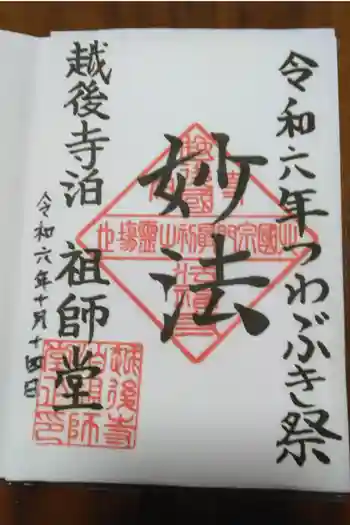 令和六年つわぶき祭
妙法
越後寺泊 祖師堂
令和六年十月十四日
越後寺
泊祖師
堂之印